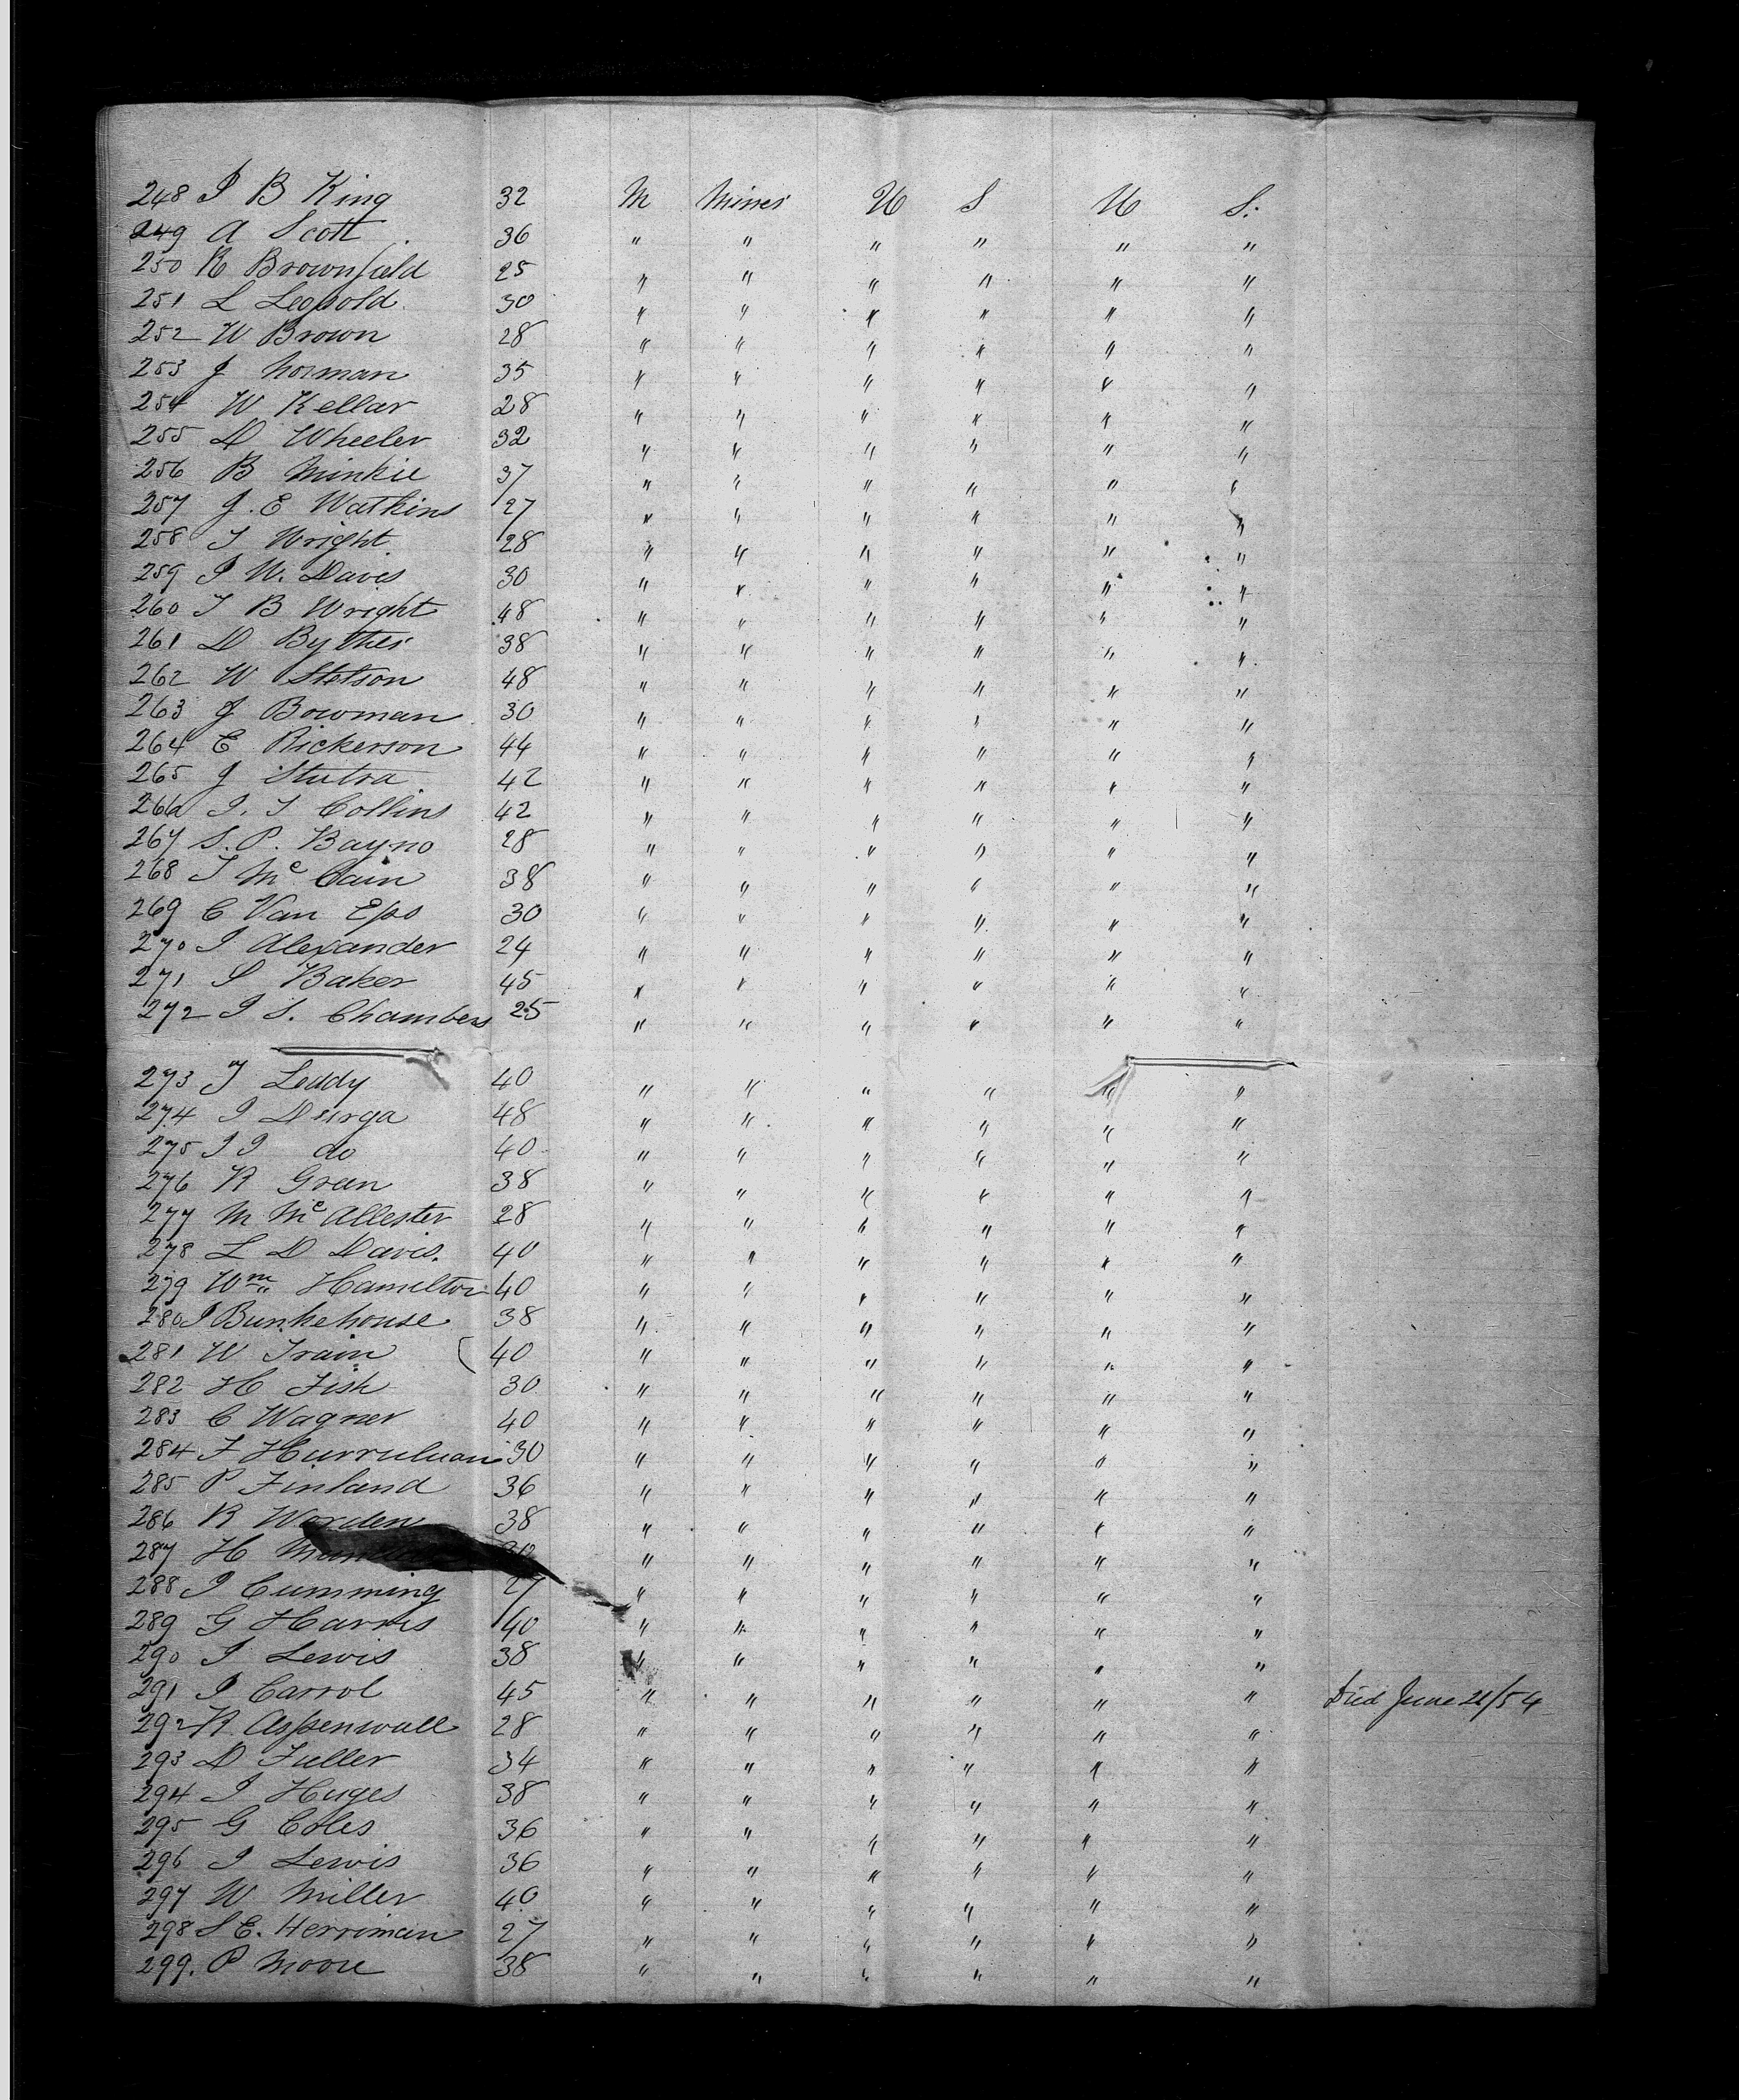 248 I B King 32 M Miner U S U S.
249 A Scott 36 " " " " " "
250 R Brownfield 25 " " " " " "
251 L Legpold 30 " " " " " "
252 W Brown 28 " " " " " "
253 J Norman 35 " " " " " "
254 W Kellar 28 " " " " " "
255 D Wheeler 32 " " " " " "
256 B Minkie 37 " " " " " "
257 J. E Watkins 27 " " " " " "
258 T Wright 28 " " " " " "
259 I W. Daves 30 " " " " " "
260 T B Wright 48 " " " " " "
261 D Byther 38 " " " " " "
262 W Stetson 48 " " " " " "
263 J Bowman 30 " " " " " "
264 E Rickerson 44 " " " " " "
265 J Stutra 42 " " " " " "
266 I. T Collins 42 " " " " " "
267 S. P. Bayno 28 " " " " " "
268 T Mc Cain 38 " " " " " "
269 C Van Eps 30 " " " " " "
270 I Alexander 24 " " " " " "
271 S Baker 45 " " " " " "
272 I S. Chambers 25 " " " " " "
273 T Leddy 40 " " " " " "
274 I Durga 48 " " " " " "
275 I I do 40 " " " " " "
276 R Green 38 " " " " " "
277 M McAllester 28 " " " " " "
278 L D Davis. 40 " " " " " "
279 Wm Hamelton 40 " " " " " "
280 I Bunkehouse 38 " " " " " "
281 W Train 40 " " " " " "
282 H Fish 30 " " " " " "
283 C Wagner 40 " " " " " "
284 F 30 " " " " " "
285 P Finland 36 " " " " " "
286 R Worden 38 " " " " " "
287 H " " " " " "
288 I Cumming 27 " " " " " "
289 G Harris 40 " " " " " "
290 I Lewis 38 " " " " " "
291 I Carrol 45 " " " " " " Died June 21/54
292 R Aspenwall 28 " " " " " "
293 D Fuller 34 " " " " " "
294 I Huges 38 " " " " " "
295 G Coles 36 " " " " " "
296 I Lewis 36 " " " " " "
297 W Miller 40 " " " " " "
298 S E. Herriman 27 " " " " " "
299. P Moore 38 " " " " " "